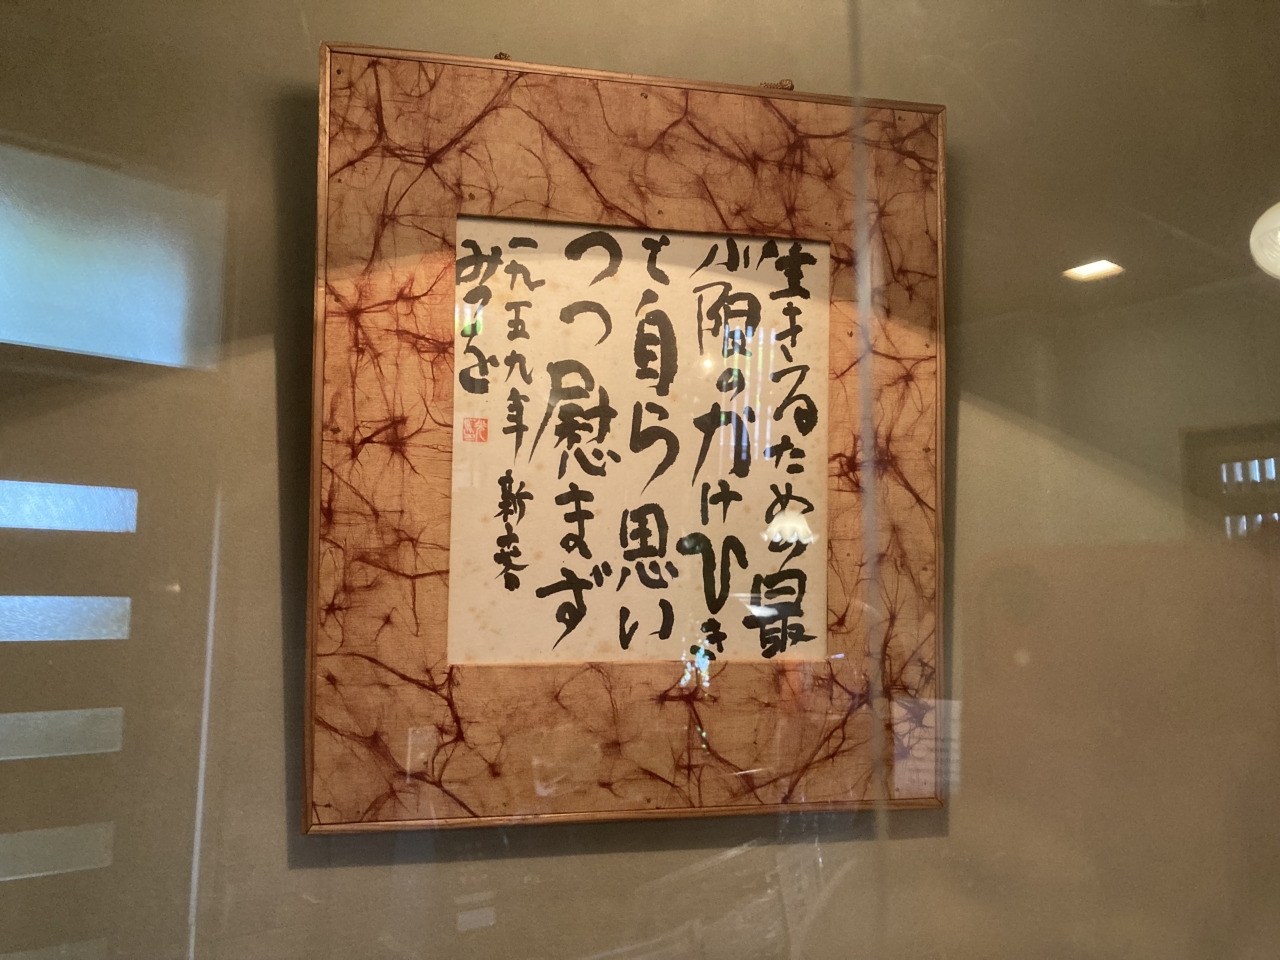 生きるための最
小限のかけひき
と自らに思い
つつ慰まず
一九五九年 新春
みつを